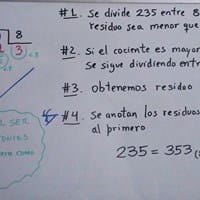 8
3
#1. Se divide 235 entre 8
residuo sea menor que
#2. Si el cociente es mayor
Se sigue dividiendo entre
#3. obtenemos residuo
#4. Se anotan los residuos
al primero
235 = 353
L SER